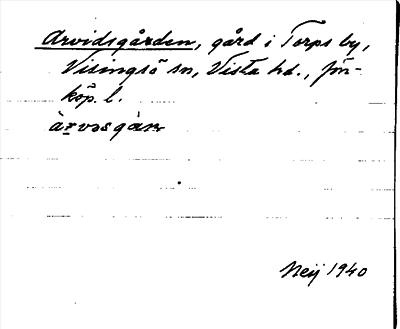 Arvidsgården, gård i Torps by,
Visingsö sn, Vista hd., Jön-
köp. l.
àrvəsgàɳ
Neij 1940